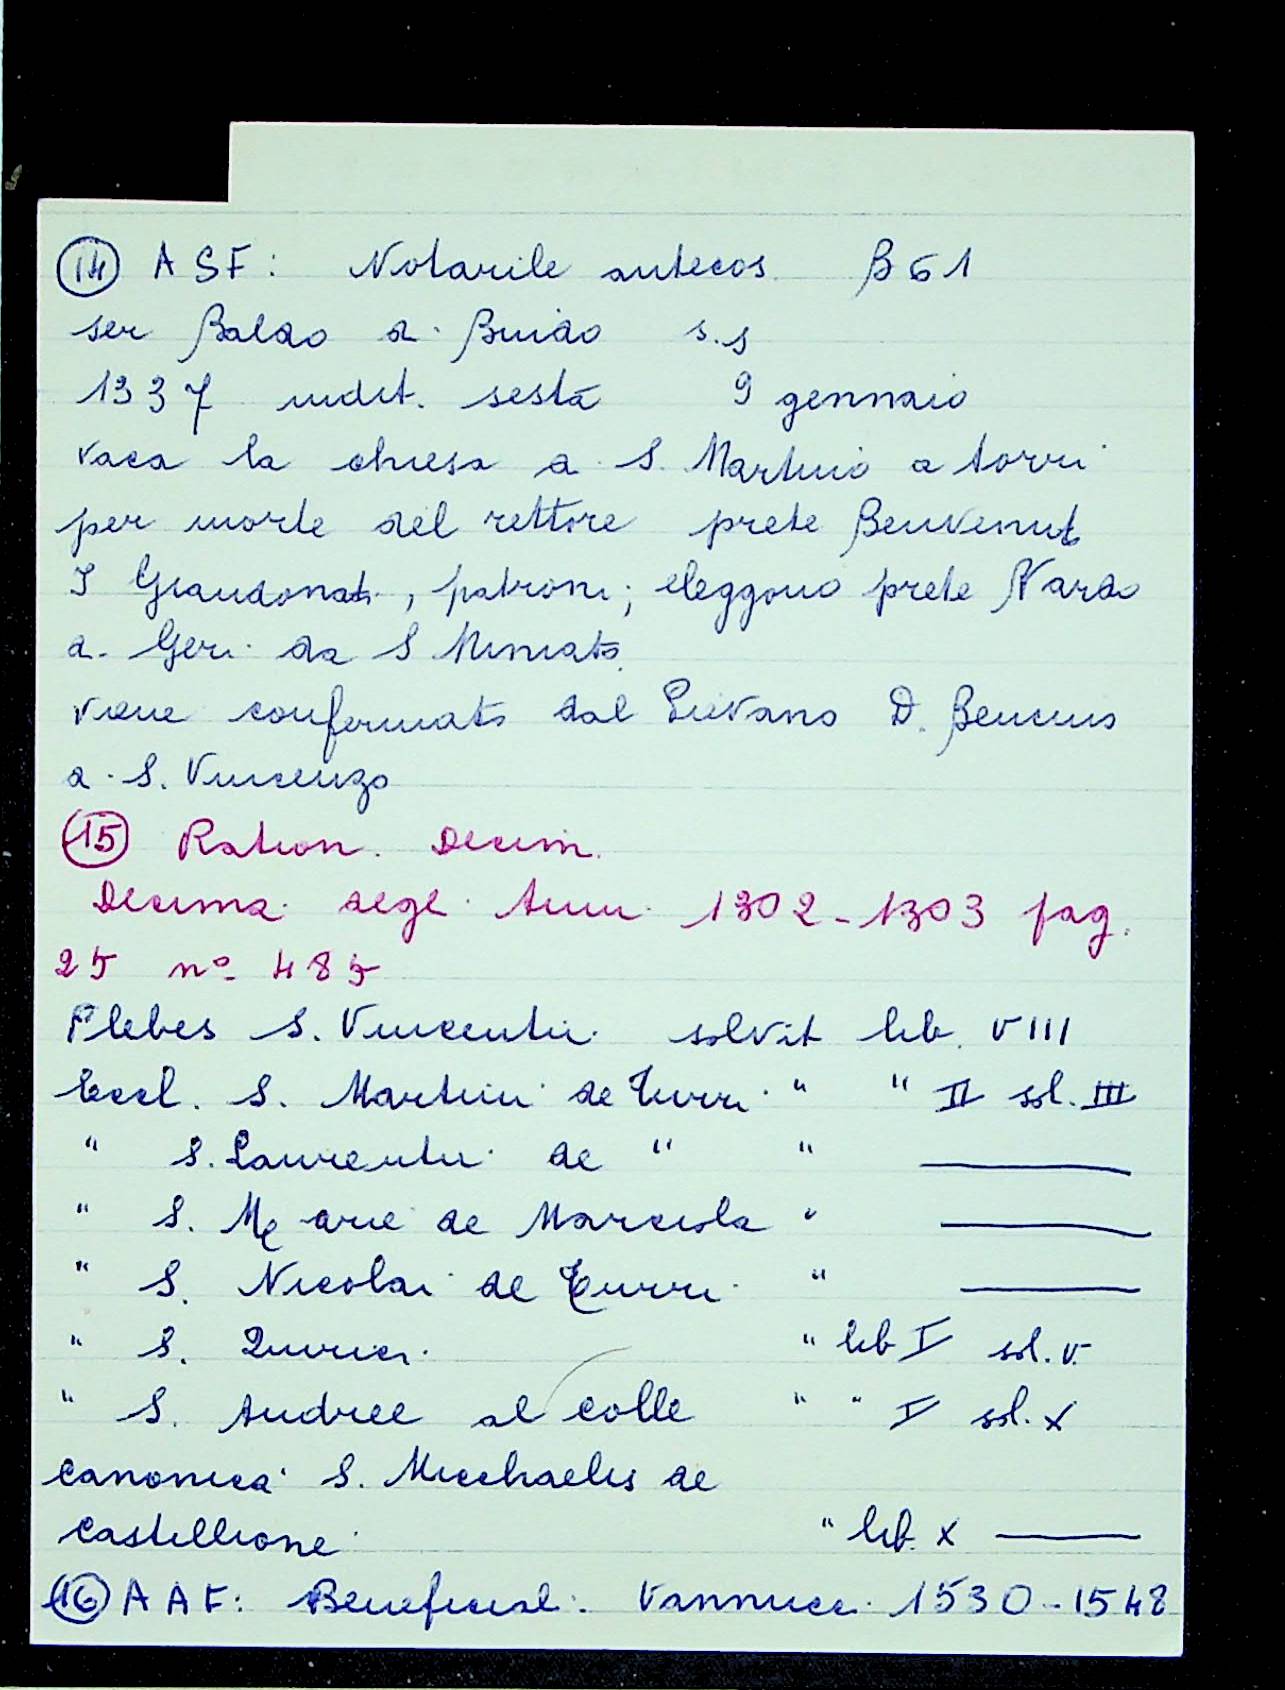 14 ASF: Notarile antecos. B 61
ser Baldo di Guido s.s
1337 indit. sesta 9 gennaio
vaca la chiesa di S. Martino a torri
per morte del rettore prete Benvenut
I Giandonati, patroni; eleggono prete Nardo
di Geri da S Miniato
viene confermato dal Pievano D. Bencius
di S. Vincenzo
15 Ration. Decim.
Decima degl. Ann. 1302-1303 pag.
25 n° 485
Plebes S. Vincentii solvit lib. VIII
Eccl. S. Martini de Turri " " II sol. III
" S. Laurentii de " "
" S. Marie de Marciola "
" S. Nicolai de Turri "
" S. Quirici " lib I sol. V.
" S. Andree al colle " " I sol. X
canonica S. Micchaelis de
castellione " lib. X
16 AAF: Beneficial. Vannucci 1530-1548